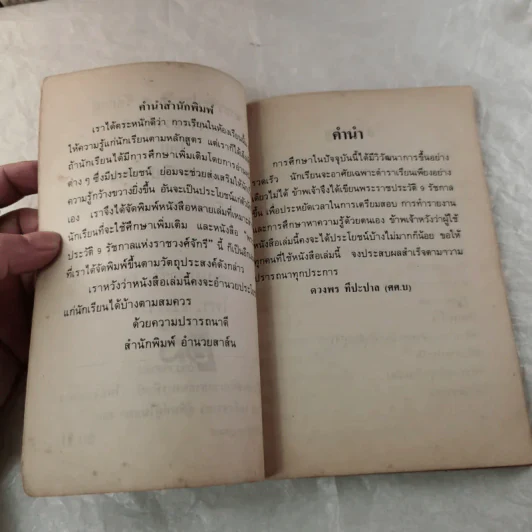 คำนำสำนักพิมพ์
เราได้ตระหนักดีว่า การเรียนในห้องเรียนนั้น
ให้ความรู้แก่นักเรียนตามหลักสูตร แต่เราก็ได้
ถ้านักเรียนได้มีการศึกษาเพิ่มเติมโดยการอ่าน
ต่าง ๆ ซึ่งมีประโยชน์ ย่อมจะช่วยส่งเสริมให้
ความรู้กว้างขวางยิ่งขึ้น อันจะเป็นประโยชน์แก่
เอง เราจึงได้จัดพิมพ์หนังสือหลายเล่มที่
นักเรียนที่จะใช้ศึกษาเพิ่มเติม และหนังสือ
ประวัติ ๑ รัชกาลแห่งราชวงศ์จักรี" นี้ ก็เป็น
ที่เราได้จัดพิมพ์ขึ้นตามวัตถุประสงค์ดังกล่าว
เราหวังว่าหนังสือเล่มนี้คงจะอำนวย
แก่นักเรียนได้บ้างตามสมควร
ด้วยความปรารถนาดี
สำนักพิมพ์ อำนวยสาส์น
คำนำ
การศึกษาในปัจจุบันนี้ได้มีวิวัฒนาการขึ้นอย่าง
รวดเร็ว นักเรียนจะอาศัยเฉพาะตำราเรียนเพียงอย่าง
เดียวไม่ได้ ข้าพเจ้าจึงได้เขียนพระราชประวัติ ๑ รัชกาล
ขึ้น เพื่อประหยัดเวลาในการเตรียมสอบ การทำรายงาน
และการศึกษาหาความรู้ด้วยตนเอง ข้าพเจ้าหวังว่าผู้ใช้
หนังสือเล่มนี้คงจะได้ประโยชน์บ้างไม่มากก็น้อย ขอให้
ทุกคนที่ใช้หนังสือเล่มนี้ จงประสบผลสำเร็จตามความ
ปรารถนาทุกประการ
ดวงพร ทีปะปาล (ศศ.บ)